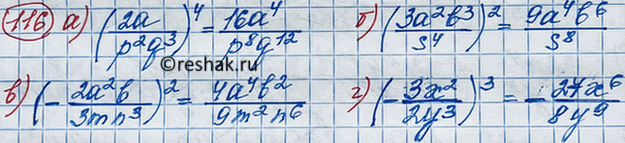 116 а) (2a/p²q³)⁴ = 16a⁴/p⁸q¹² б) (3a²b³/s⁴)² = 9a⁴b⁶/s⁸
©reshak.ru
в) (-2a²b/3mn³)² = 4a⁴b²/9m²n⁶ г) (-3x²/2y³)³ = -27x⁶/8y⁹